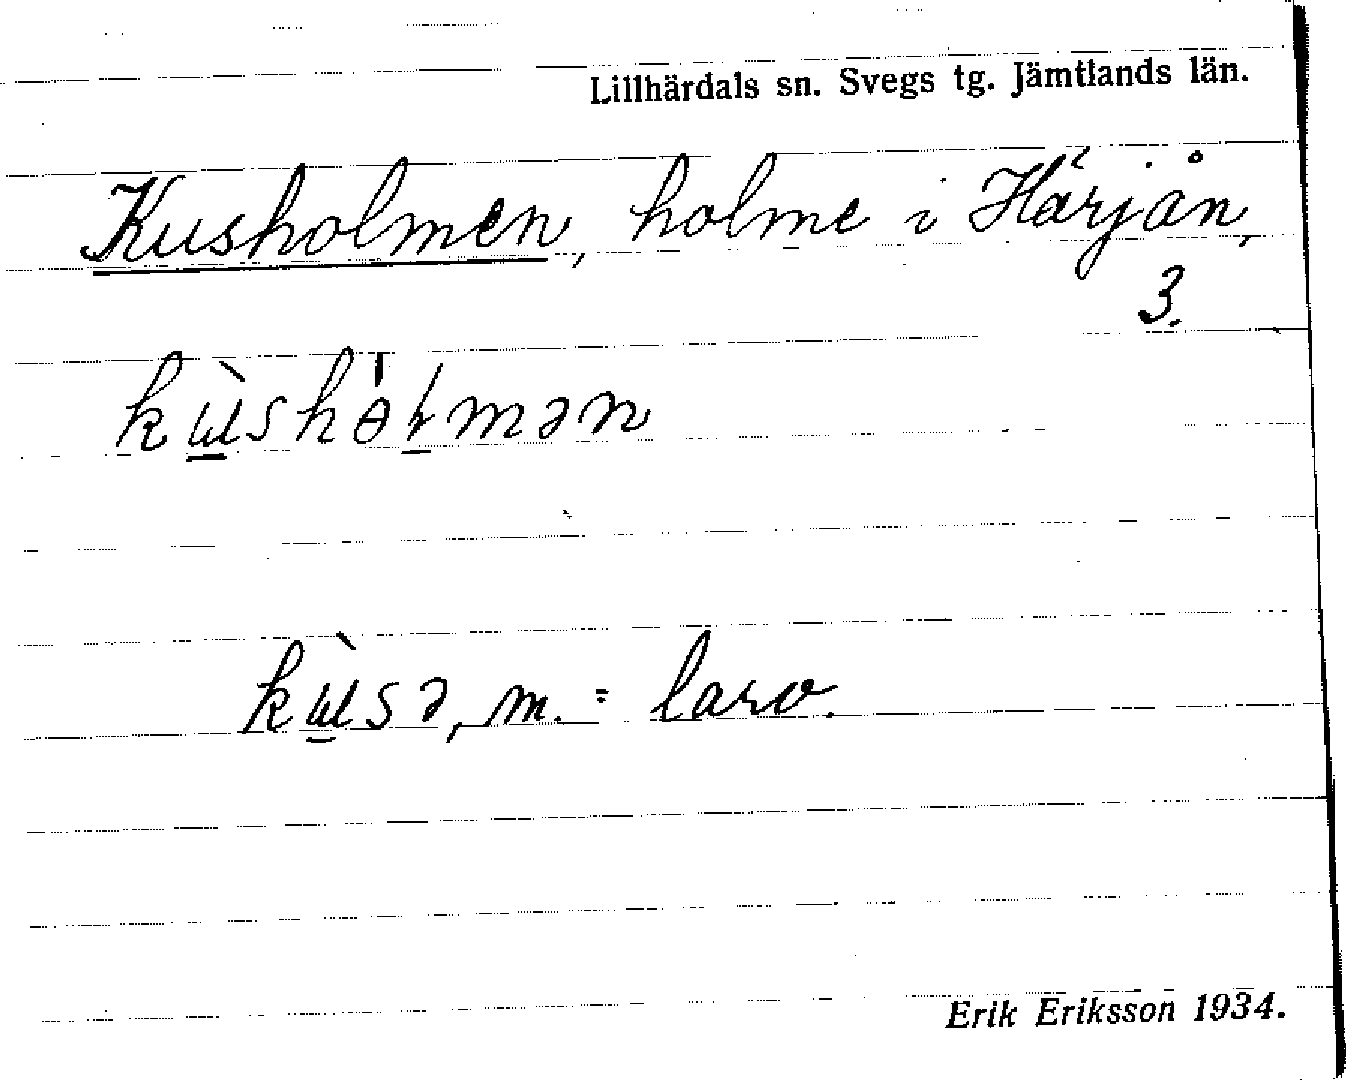 Lillhärdals sn. Svegs tg. Jämtlands län.
Kusholmen, holme i Härjån,
3.
kùshɵ̍ɫmən
kùsə, m. = larv.
Erik Eriksson 1934.